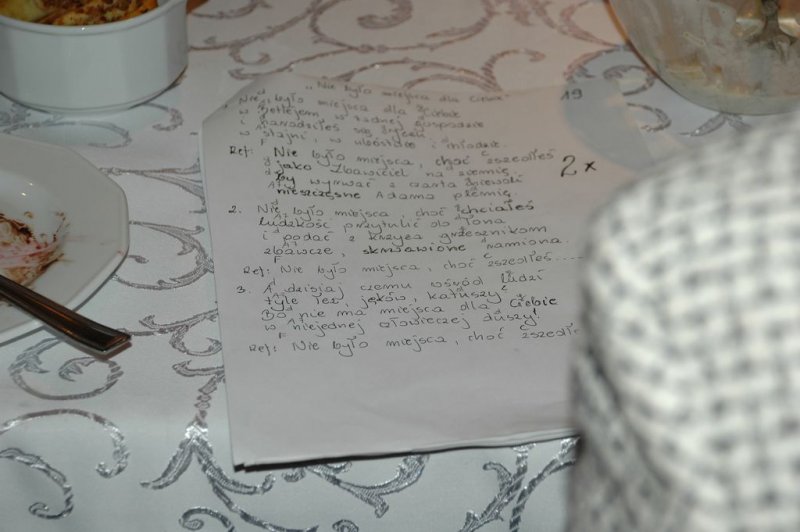 "Nie było miejsca dla Ciebie"
19
1. Nie było miejsca dla Ciebie
w Betlejem w żadnej gospodzie
i narodziłeś się Jezu
w stajni, w ubóstwie i chłodzie.
Ref: Nie było miejsca, choć zszedłeś
jako Zbawiciel na ziemię,
By wyrwać z czarta niewoli
nieszczęsne Adama plemię.
2x
2. Nie było miejsca, choć chciałeś
ludzkość przytulić do łona
i podać z krzyża grzesznikom
zbawcze, skrwawione ramiona.
Ref: Nie było miejsca, choć zszedłeś.....
3. A dzisiaj czemu wśród ludzi
tyle łez, jęków, katuszy
Bo nie ma miejsca dla Ciebie
w niejednej człowieczej duszy!
Ref: Nie było miejsca, choć zszedłe